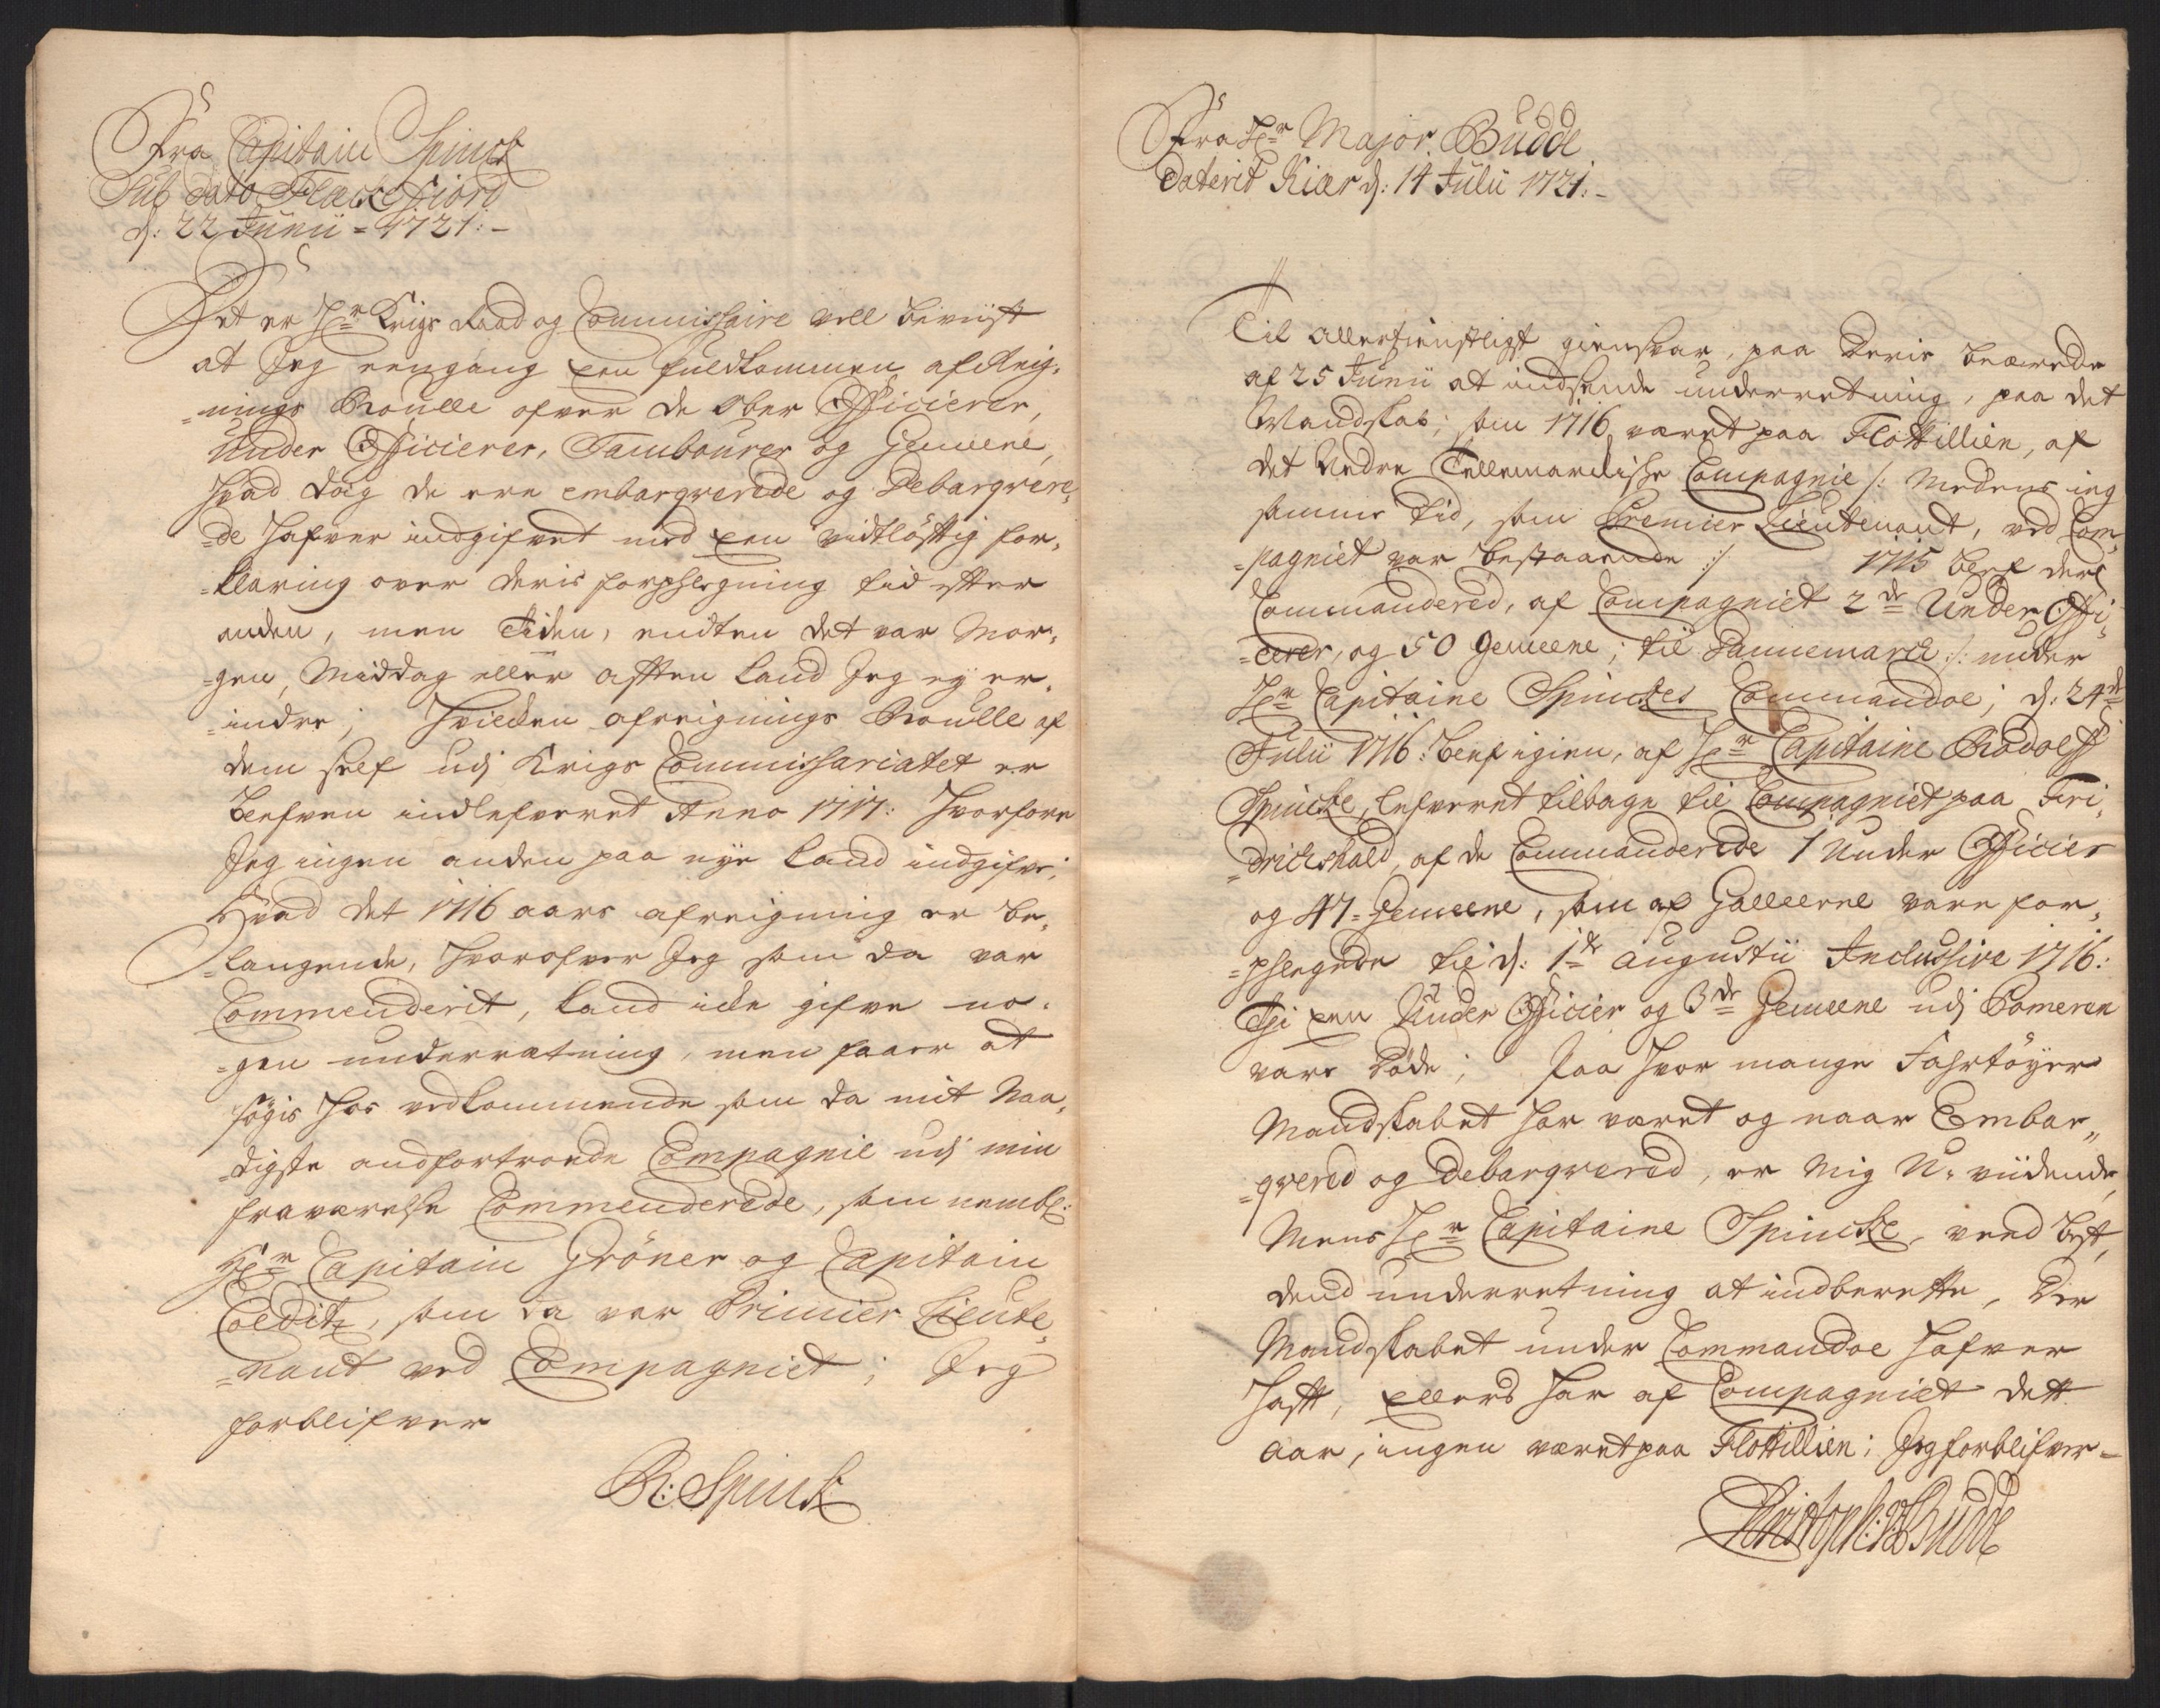 Fra Capitain Spinck
Sub dato Fleckefiord
d: 22 Junii = 1721:-
Det er Hr Krigs Raad og Commissaire vell beviist
at Jeg eengang een fuldkommen afreig-
=nings Roulle ofver de Ober Officierer,
Under Officierer, Tambourer og Gemeene,
hvad dag de ere embarqverede og Debarqvere-
=de hafver indgifvet med een vidtløftig for-
=klaring over deris forpflegning tid efter
anden, men Tiden, endten det var Mor-
=gen, Middag eller afften kand Jeg ej er-
=indre; hvilcken afreignings Roulle af
dem self udj Krigs Commissariatet er
blefven indlefveret Anno 1717: hvorfore
Jeg ingen anden paa nye kand indgifve;
Hvad det 1716 aars afreigning er be-
=langende, hvorofver Jeg som da var
Commenderit, kand icke gifve no-
=gen underretning, men faaer at
søgis hos vedkommende som da mit Naa-
=digste andfortroede Compagnie udj min
fraværelse Commenderede, som nembl:
Hr Capitain Grøner og Capitain
Colditz, som da var Primier Lieute-
=nant ved Compagniet; Jeg
forblifver
R: Spinck
Fra Hr Major Budde
Daterit Kiær d: 14 Julii 1721:-
Til allertienstligst giensvar, paa Deris beærede
af 25 Junii at indsende underretning, paa det
Mandskab, som 1716 været paa Flottillien, af
det Nedre Tellemarckishe Compagnie /: Medens ieg
samme tid, som Premier Lieutenant, ved Com-
=pagniet var bestaaende :/ 1715 blef der
Commandered, af Compagniet 2de Under Offi-
=cerer, og 50 Gemeene, til Dannemarck :/: under
Hr Capitaine Spinckes Commandoe; d: 24de
Julii 1716: blef igien, af Hr Capitaine Rodolff
Spincke, lefveret tilbage til Compagniet paa Fri-
=drichshald, af de Commanderede 1 Under Officier
og 47= Gemeene, som af Galleerne vare for-
=pflegede til d: 1te Augustii Inclusive 1716:
Thi een Under Officier og 3de Gemeene udj Pomeren
vare døde; Paa hvor mange Fahrtøyer
Mandskabet har været og naar Embar-
=qvered og Debarqvered, er Mig U-viidende,
Mens Hr Capitaine Spincke, veed best,
dend underretning at indberette, der
Mandskabet under Commandoe hafver
hafft, ellers har af Compagniet dett
aar, ingen været paa Flottillien; Jeg forblifver-
Christoph: Budde